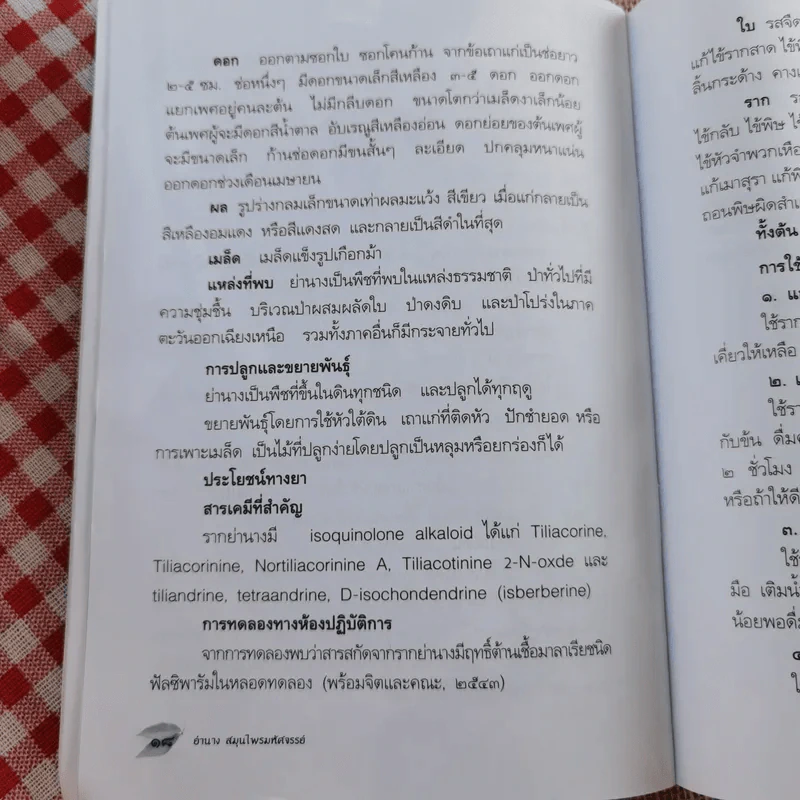 ดอก ออกตามซอกใบ ซอกโคนก้าน จากข้อเถาแก่เป็นช่อยาว
๒-๕ ซม. ช่อหนึ่งๆ มีดอกขนาดเล็กสีเหลือง ๓-๕ ดอก ออกดอก
แยกเพศอยู่คนละต้น ไม่มีกลีบดอก ขนาดโตกว่าเมล็ดงาเล็กน้อย
ต้นเพศผู้จะมีดอกสีน้ำตาล อับเรณูสีเหลืองอ่อน ดอกย่อยของต้นเพศผู้
จะมีขนาดเล็ก ก้านช่อดอกมีขนสั้นๆ ละเอียด ปกคลุมหนาแน่น
ออกดอกช่วงเดือนเมษายน
ผล รูปร่างกลมเล็กขนาดเท่าผลมะแว้ง สีเขียว เมื่อแก่กลายเป็น
สีเหลืองอมแดง หรือสีแดงสด และกลายเป็นสีดำในที่สุด
เมล็ด เมล็ดแข็งรูปเกือกม้า
แหล่งที่พบ ย่านางเป็นพืชที่พบในแหล่งธรรมชาติ ป่าทั่วไปที่มี
ความชุ่มชื้น บริเวณป่าผสมผลัดใบ ป่าดงดิบ และป่าโปร่งในภาค
ตะวันออกเฉียงเหนือ รวมทั้งภาคอื่นก็มีกระจายทั่วไป
การปลูกและขยายพันธุ์
ย่านางเป็นพืชที่ขึ้นในดินทุกชนิด และปลูกได้ทุกฤดู
ขยายพันธุ์โดยการใช้หัวใต้ดิน เถาแก่ที่ติดหัว ปักชำยอด หรือ
การเพาะเมล็ด เป็นไม้ที่ปลูกง่ายโดยปลูกเป็นหลุมหรือยกร่องก็ได้
ประโยชน์ทางยา
สารเคมีที่สำคัญ
รากย่านางมี isoquinolone alkaloid ได้แก่ Tiliacorine,
Tiliacorinine, Nortiliacorinine A, Tiliacotinine 2-N-oxde และ
tiliandrine, tetraandrine, D-isochondendrine (isberberine)
การทดลองทางห้องปฏิบัติการ
จากการทดลองพบว่าสารสกัดจากรากย่านางมีฤทธิ์ต้านเชื้อมาลาเรียชนิด
ฟัลซิพารัมในหลอดทดลอง (พร้อมจิตและคณะ, ๒๕๔๓)
๑๘ ย่านาง สมุนไพรมหัศจรรย์
ใบ รสจืด
แก้ไข้รากสาด ไข้
ลิ้นกระด้าง คาง
ราก
ใช้กลับ ไข้พิษ
ไข้หัวจำพวกเหือ
แก้เมาสุรา แก้
ถอนพิษผิดสำ
ทั้งต้น
การใช้
๑.
ใช้ราก
เคี่ยวให้เหลือ
๒.
ใช้รา
กับข้น ดื่ม
๒ ชั่วโมง
หรือถ้าให้ดี
๓.
ใช้
มือ เติมน้ำ
น้อยพอดื่ม